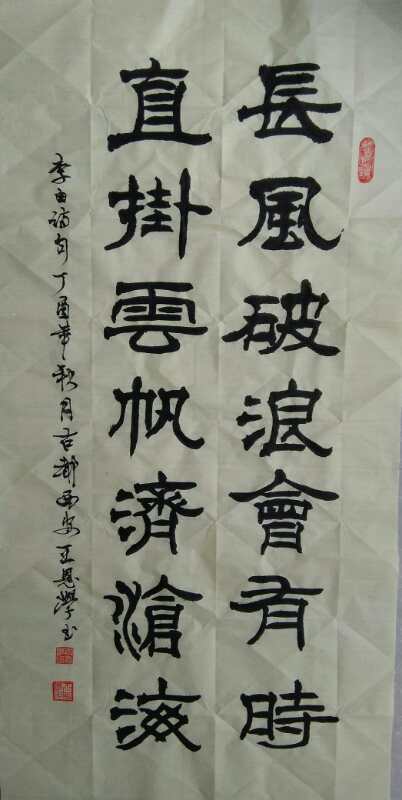 長風破浪會有時
直掛雲帆濟滄海
李白詩句丁酉年秋月古都西安王恩學書